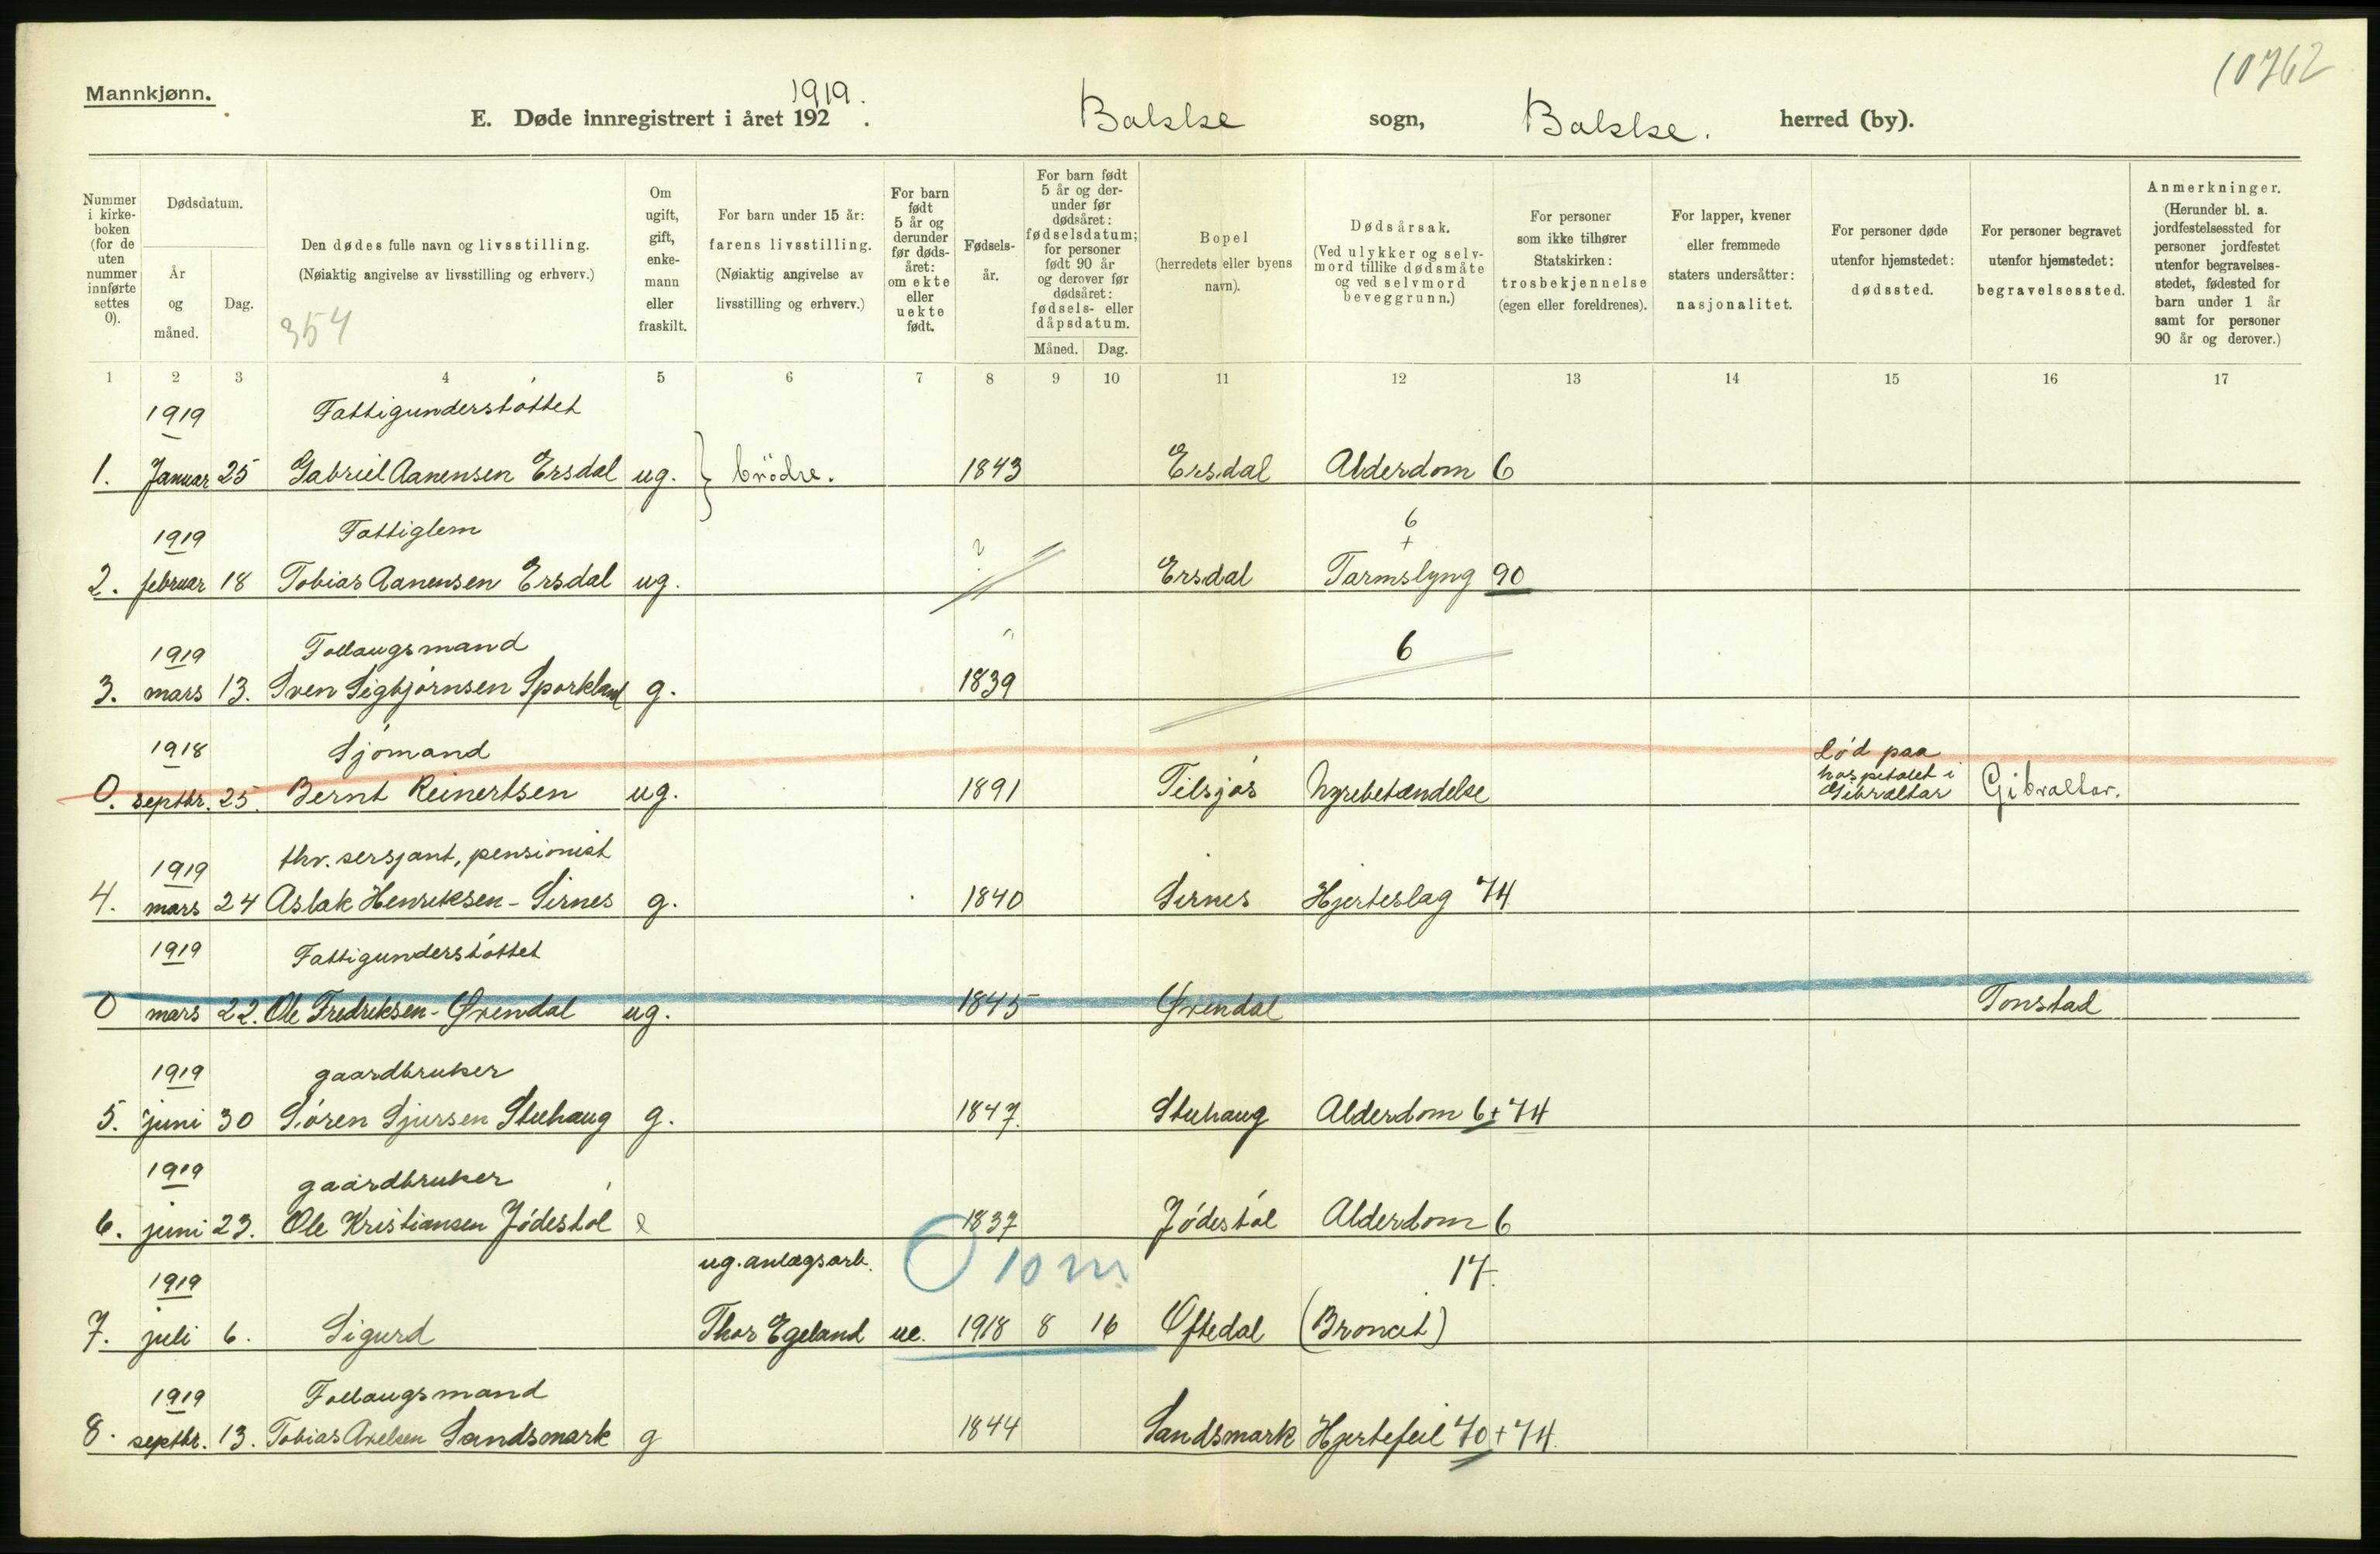 10762
Mannkjønn.
1919.
E. Døde innregistrert i året 192 .
Bakke sogn, Bakke. herred (by).
Nummer i kirkeboken (for de uten nummer innførte settes 0).
Dødsdatum.
År og måned.
Dag.
Den dødes fulle navn og livsstilling.
(Nøiaktig angivelse av livsstilling og erhverv.)
354
Om ugift, gift, enkemann eller fraskilt.
For barn under 15 år:
farens livsstilling.
(Nøiaktig angivelse av livsstilling og erhverv.)
For barn født 5 år og derunder før dødsåret: om ekte eller uekte født.
Fødselsår.
For barn født 5 år og derunder før dødsåret: fødselsdatum; for personer født 90 år og derover før dødsåret: fødsels- eller dåpsdatum.
Måned. Dag.
Bopel
(herredets eller byens navn).
Dødsårsak.
(Ved ulykker og selvmord tillike dødsmåte og ved selvmord beveggrunn.)
For personer som ikke tilhører Statskirken: trosbekjennelse (egen eller foreldrenes).
For lapper, kvener eller fremmede staters undersåtter: nasjonalitet.
For personer døde utenfor hjemstedet: dødssted.
For personer begravet utenfor hjemstedet: begravelsessted.
Anmerkninger.
(Herunder bl. a. jordfestelsessted for personer jordfestet utenfor begravelsesstedet, fødested for barn under 1 år samt for personer 90 år og derover.)
1 2 3 4 5 6 7 8 9 10 11 12 13 14 15 16 17
1919 Fattigunderstøttet
1. Januar 25 Gabriel Aanensen Ersdal ug. } brödre. 1843 Ersdal Alderdom 6
1919 Fattiglem ? 6 +
2. februar 18 Tobias Aanensen Ersdal ug. Ersdal Tarmslyng 90
1919 Follaugsmand 6
3. mars 13. Sven Sigbjørnsen Sporkland g. 1839
1918 Sjømand død paa hospitalet i
0. septbr. 25. Bernt Reinertsen ug. 1891 Tilsjøs Nyrebetændelse Gibraltar Gibraltar.
1919 fhv. sersjant, pensionist
4. mars 24 Aslak Henriksen - Sirnes g. 1840 Sirnes Hjerteslag 74
1919 Fattigunderstøttet
0 mars 22. Ole Fredriksen - Øvendal ug. 1845 Øvendal Tonstad
1919 gaardbruker
5. juni 30 Søren Sjursen Stuhaug g. 1847. Stuhaug Alderdom 6 + 74
1919 gaardbruker
6. juni 23. Ole Kristiansen Jødestøl e 1837 Jødestøl Alderdom 6
1919 ug. anlægsarb. 10 m. 17.
7. juli 6. Sigurd Thor Egeland ue. 1918 8 16 Oftedal (Broncit)
1919 Follaugsmand
8. septbr. 13. Tobias Axelsen Sandsmark g 1844 Sandsmark Hjertefeil 70 + 74.